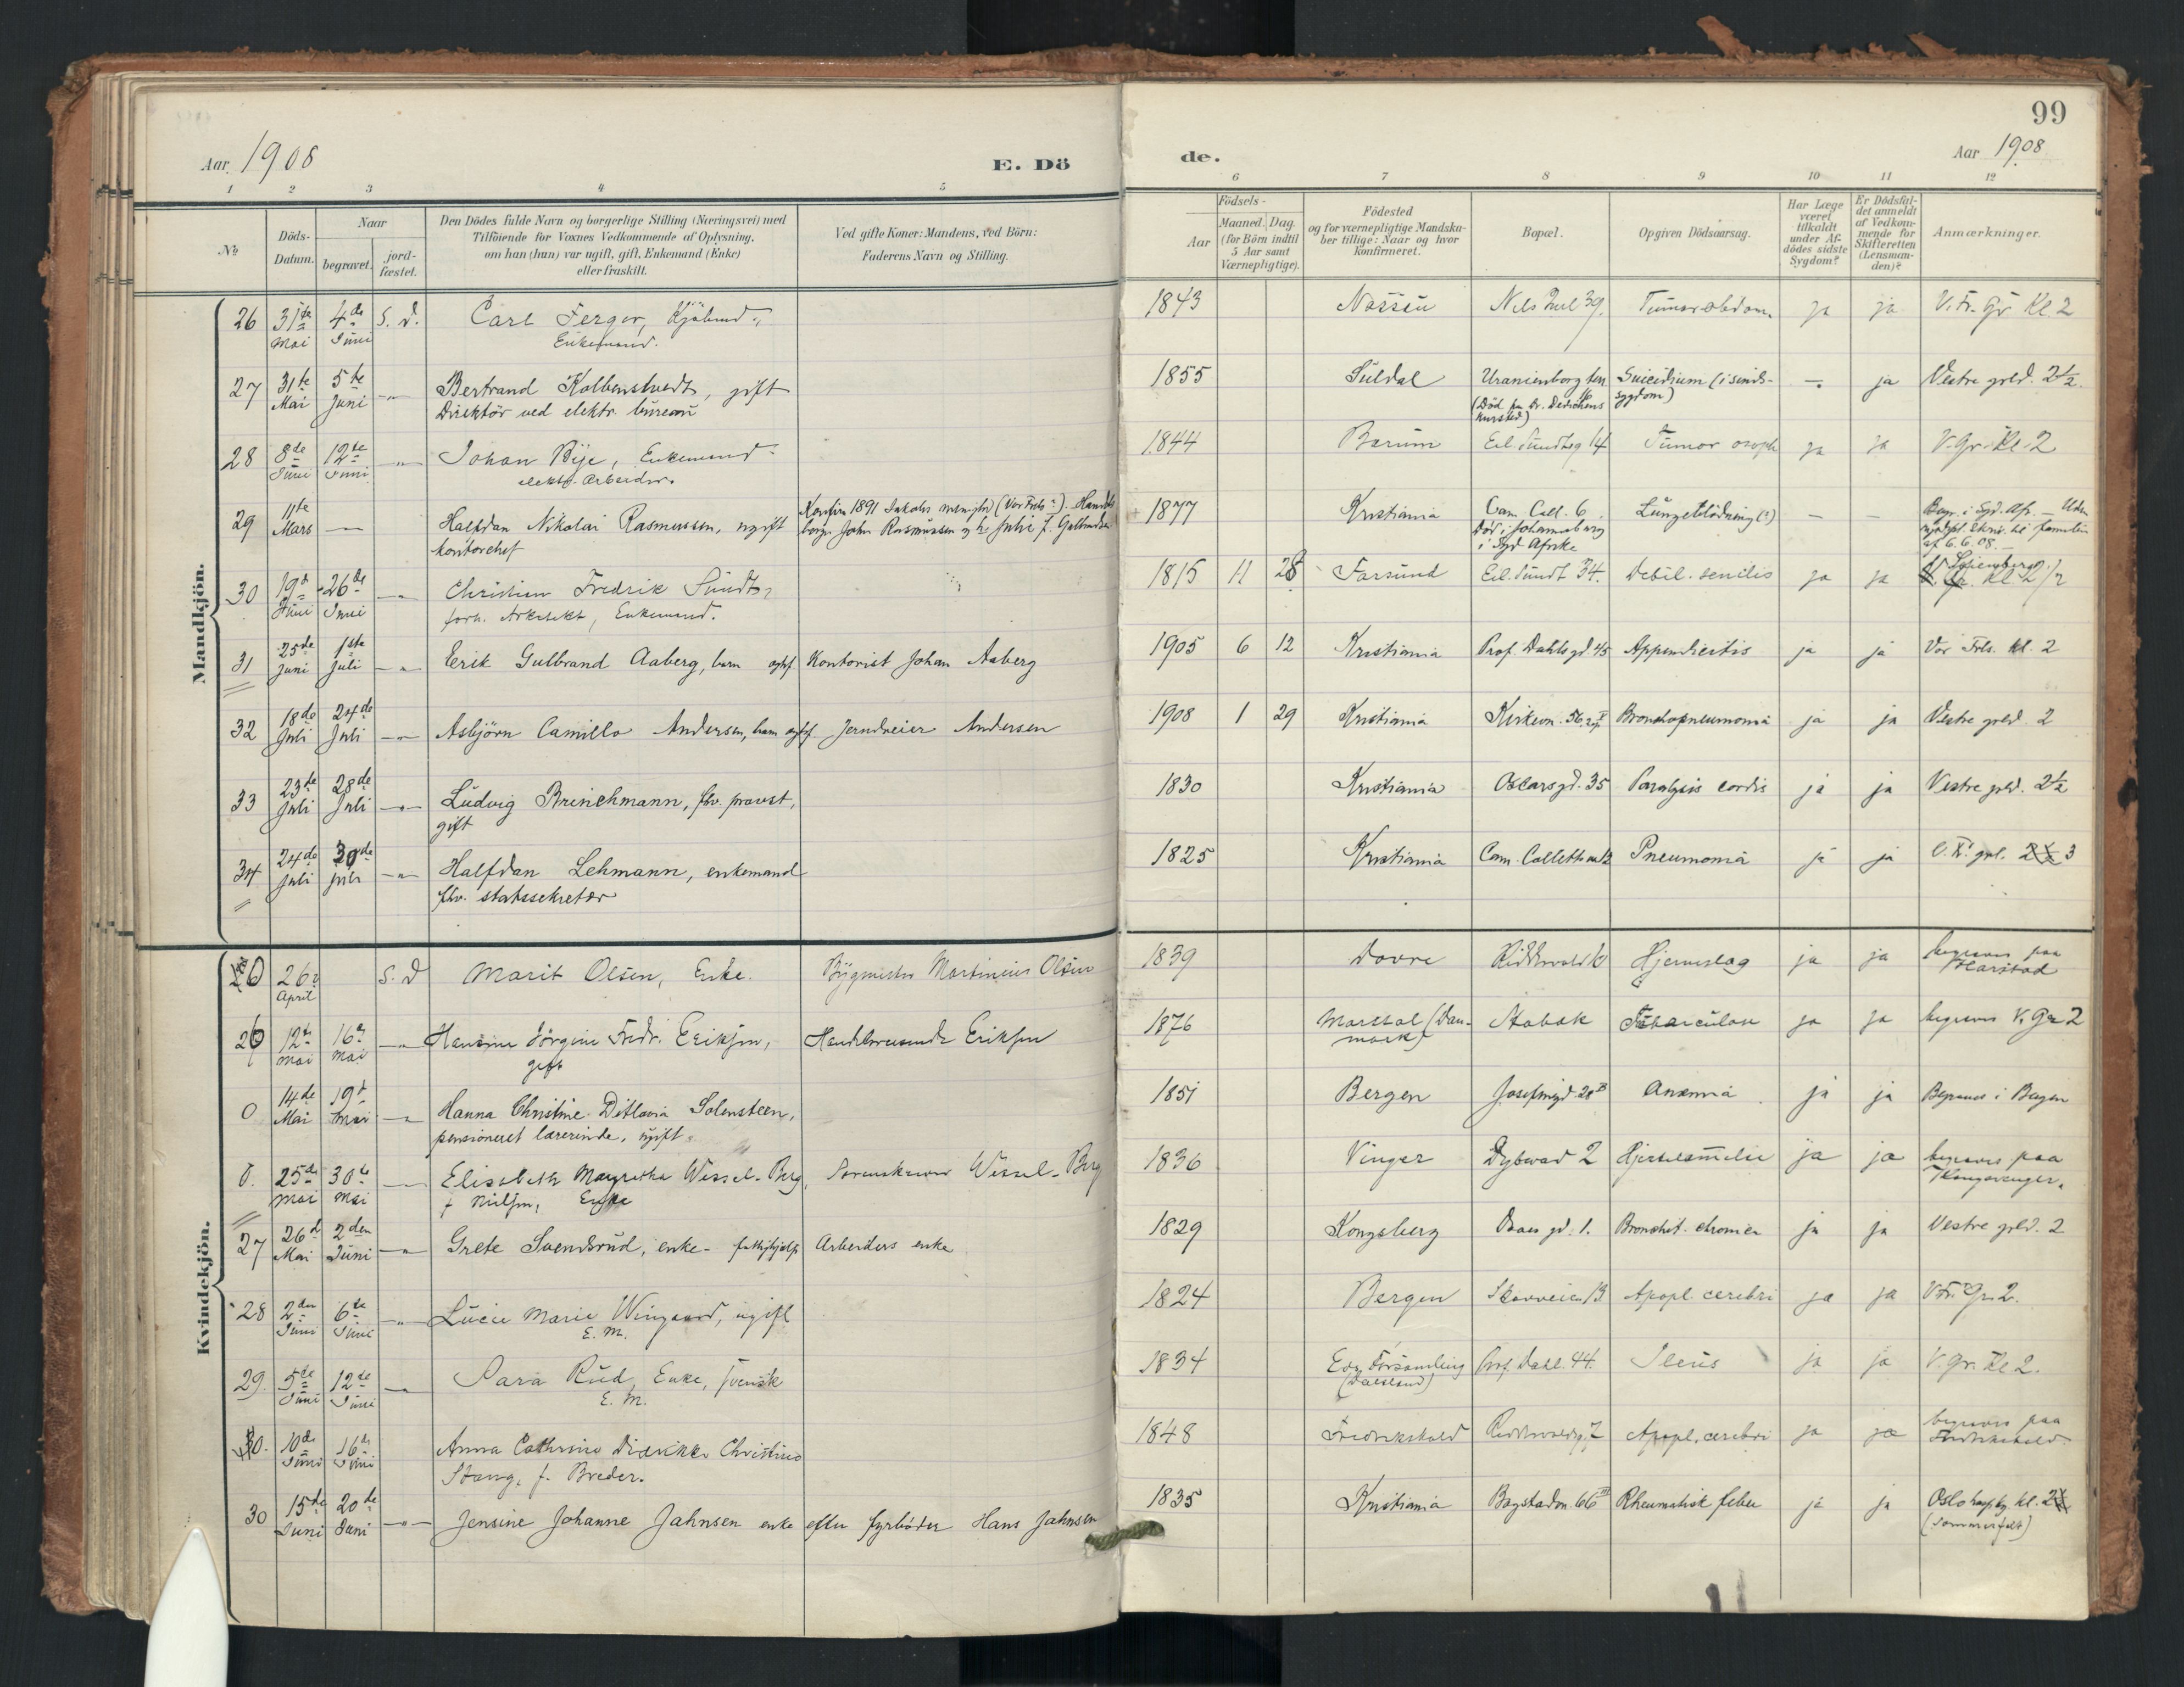 99
Aar 1908
E. Dö
de.
Aar 1908
1 2 3 4 5 6 7 8 9 10 11 12
No
Döds-Datum.
Naar
begravet.
jord-fæstet.
Den Dödes fulde Navn og borgerlige Stilling (Næringsvei) med
Tilföiende for Voxnes Vedkommende af Oplysning,
om han (hun) var ugift, gift, Enkemand (Enke)
eller fraskilt.
Ved gifte Koner: Mandens, ved Börn:
Faderens Navn og Stilling.
Födsels-
Aar
Maaned. Dag.
(for Börn indtil
5 Aar samt
Værnepligtige).
Födested
og for værnepligtige Mandska-
ber tillige: Naar og hvor
Konfirmeret.
Bopæl.
Opgiven Dödsaarsag.
Har Læge
været
tilkaldt
under Af-
dödes sidste
Sygdom?
Er Dödsfal-
det anmeldt
af Vedkom-
mende for
Skifteretten
(Lensman-
den)?
Anmærkninger.
Mandkjön.
26 31te Mai 4de Juni S. d. Carl Ferger,
Enkemand.
1843 Nils Juel 39. Tumor abdom. ja ja V. Fr. Gr. Kl. 2
27 31te Mai 5te Juni -"- Bertrand Kolbenstvedt, gift
Direktör ved elektr. bureau
1855 Suldal Uranienborg ter. Suicidium (i sinds-
sygdom) — ja Vestre grld. 2½
(Död paa Dr. Dedichens
kursted)
28 8de Juni 12te Juni -"- Johan Bye, Enkemand
elektr. Arbeider.
1844 Bærum Eil. Sundtsg 14 Tumor ja ja V. Gr. Kl. 2
29 11te Mars — Halfdan Nikolai Rasmussen, ugift
kontorchef
1877 Kristiania Cam. Coll. 6. Lungeblödning (?) — —
Död i Johannesburg
i Syd Afrika
af 6.6.08.
30 19d Juni 26de Juni -"- Christian Fredrik Sundt,
forh. Arkitekt, Enkemand.
1815 11 28 Farsund Eil. Sundt 34. Debil. senilis ja ja
31 25de Juni 1ste Juli -"- Eerik Gulbrand Aaberg, barn Kontorist Johan Aaberg
1905 6 12 Kristiania Prof. Dahls gd. 45 Appendicitis ja ja Vor Frls. kl. 2
32 18de Juli 24de Juli -"- Asbjörn Camillo Andersen, barn Jerndreier Andersen
1908 1 29 Kristiania Kirkevn. 56 Bronchopneumonia ja ja Vestre grld. 2
33 23de Juli 28de Juli -"- Ludvig Brinchmann, fhv. provst,
gift
1830 Kristiania Oscarsgd. 35 Paralysis cordis ja ja Vestre grld. 2½
34 24de Juli 30de Juli -"- Halfdan Lehmann, enkemand
fhv. statssekretær
1825 Kristiania Cam. Colletts Pneumonia ja ja 3
Kvindekjön.
0 26 April S. D Marit Olsen, Enke. Bygmester Martinius Olsen
1839 Dovre Hjerneslag ja ja begraves paa
Harstad
26 12te Mai 16 Mai -"- Jörgine Fredr. Eriksen, Eriksen
gift
1876 Marstal (Dan-
mark) Stabæk ja ja begraves V. Gr 2
0 14de Mai 19d Mai -"- Hanna Christine Ditlovia Solensteen,
pensioneret lærerinde, ugift.
1851 Bergen Josefinegd. 28 Anæmia ja ja Begraves i Bergen
0. 25de Mai 30te Mai — Elisabeth Margretha Wessel-Berg, Sorenskriver Wessel-Berg
f Nielsen, Enke
1836 Vinger Dybwad 2 ja ja begraves paa
Kongsvinger.
27 26d Mai 2den Juni -"- Grete Svendsrud, enke Arbeiders enke
1829 Kongsberg Daas gd. 1. Bronchit. chronica ja ja Vestre grld. 2
28 2den Juni 6te Juni -"- Lucie Marie Wingaard, ugift
E. M.
1824 Bergen 13 Apopl. cerebri ja ja V. Fr. Gr. 2.
29. 5de Juni 12te Juni — Sara Rud, Enke, svensk
E. M.
1834 Församling
(Dalsland) Prof. Dahl. 44. Ileus ja ja V. Gr. Kl 2.
30. 10de Juni 16de Juni Anna Cathrine Didrikke Christine
Stang, f. Breder.
1848 Fredrikshald Apopl. cerebri ja ja begraves paa
Fredrikshald.
30 15de Juni 20de Juni -"- Jensine Johanne Jahnsen enke efter fyrböder Hans Jahnsen
1835 Kristiania Bogstadvn. 66 Rheumatisk feber ja ja Oslo kl. 2
(Sommerfelt)